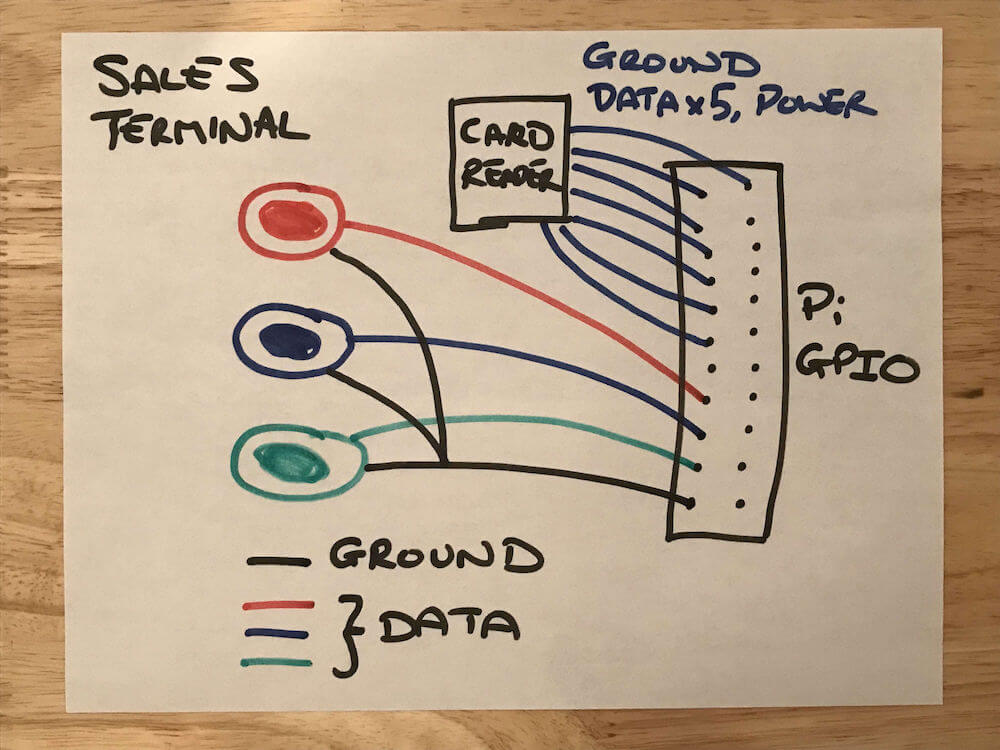 SALES
TERMINAL
GROUND
DATA x5, POWER
CARD
READER
Pi
GPIO
GROUND
DATA